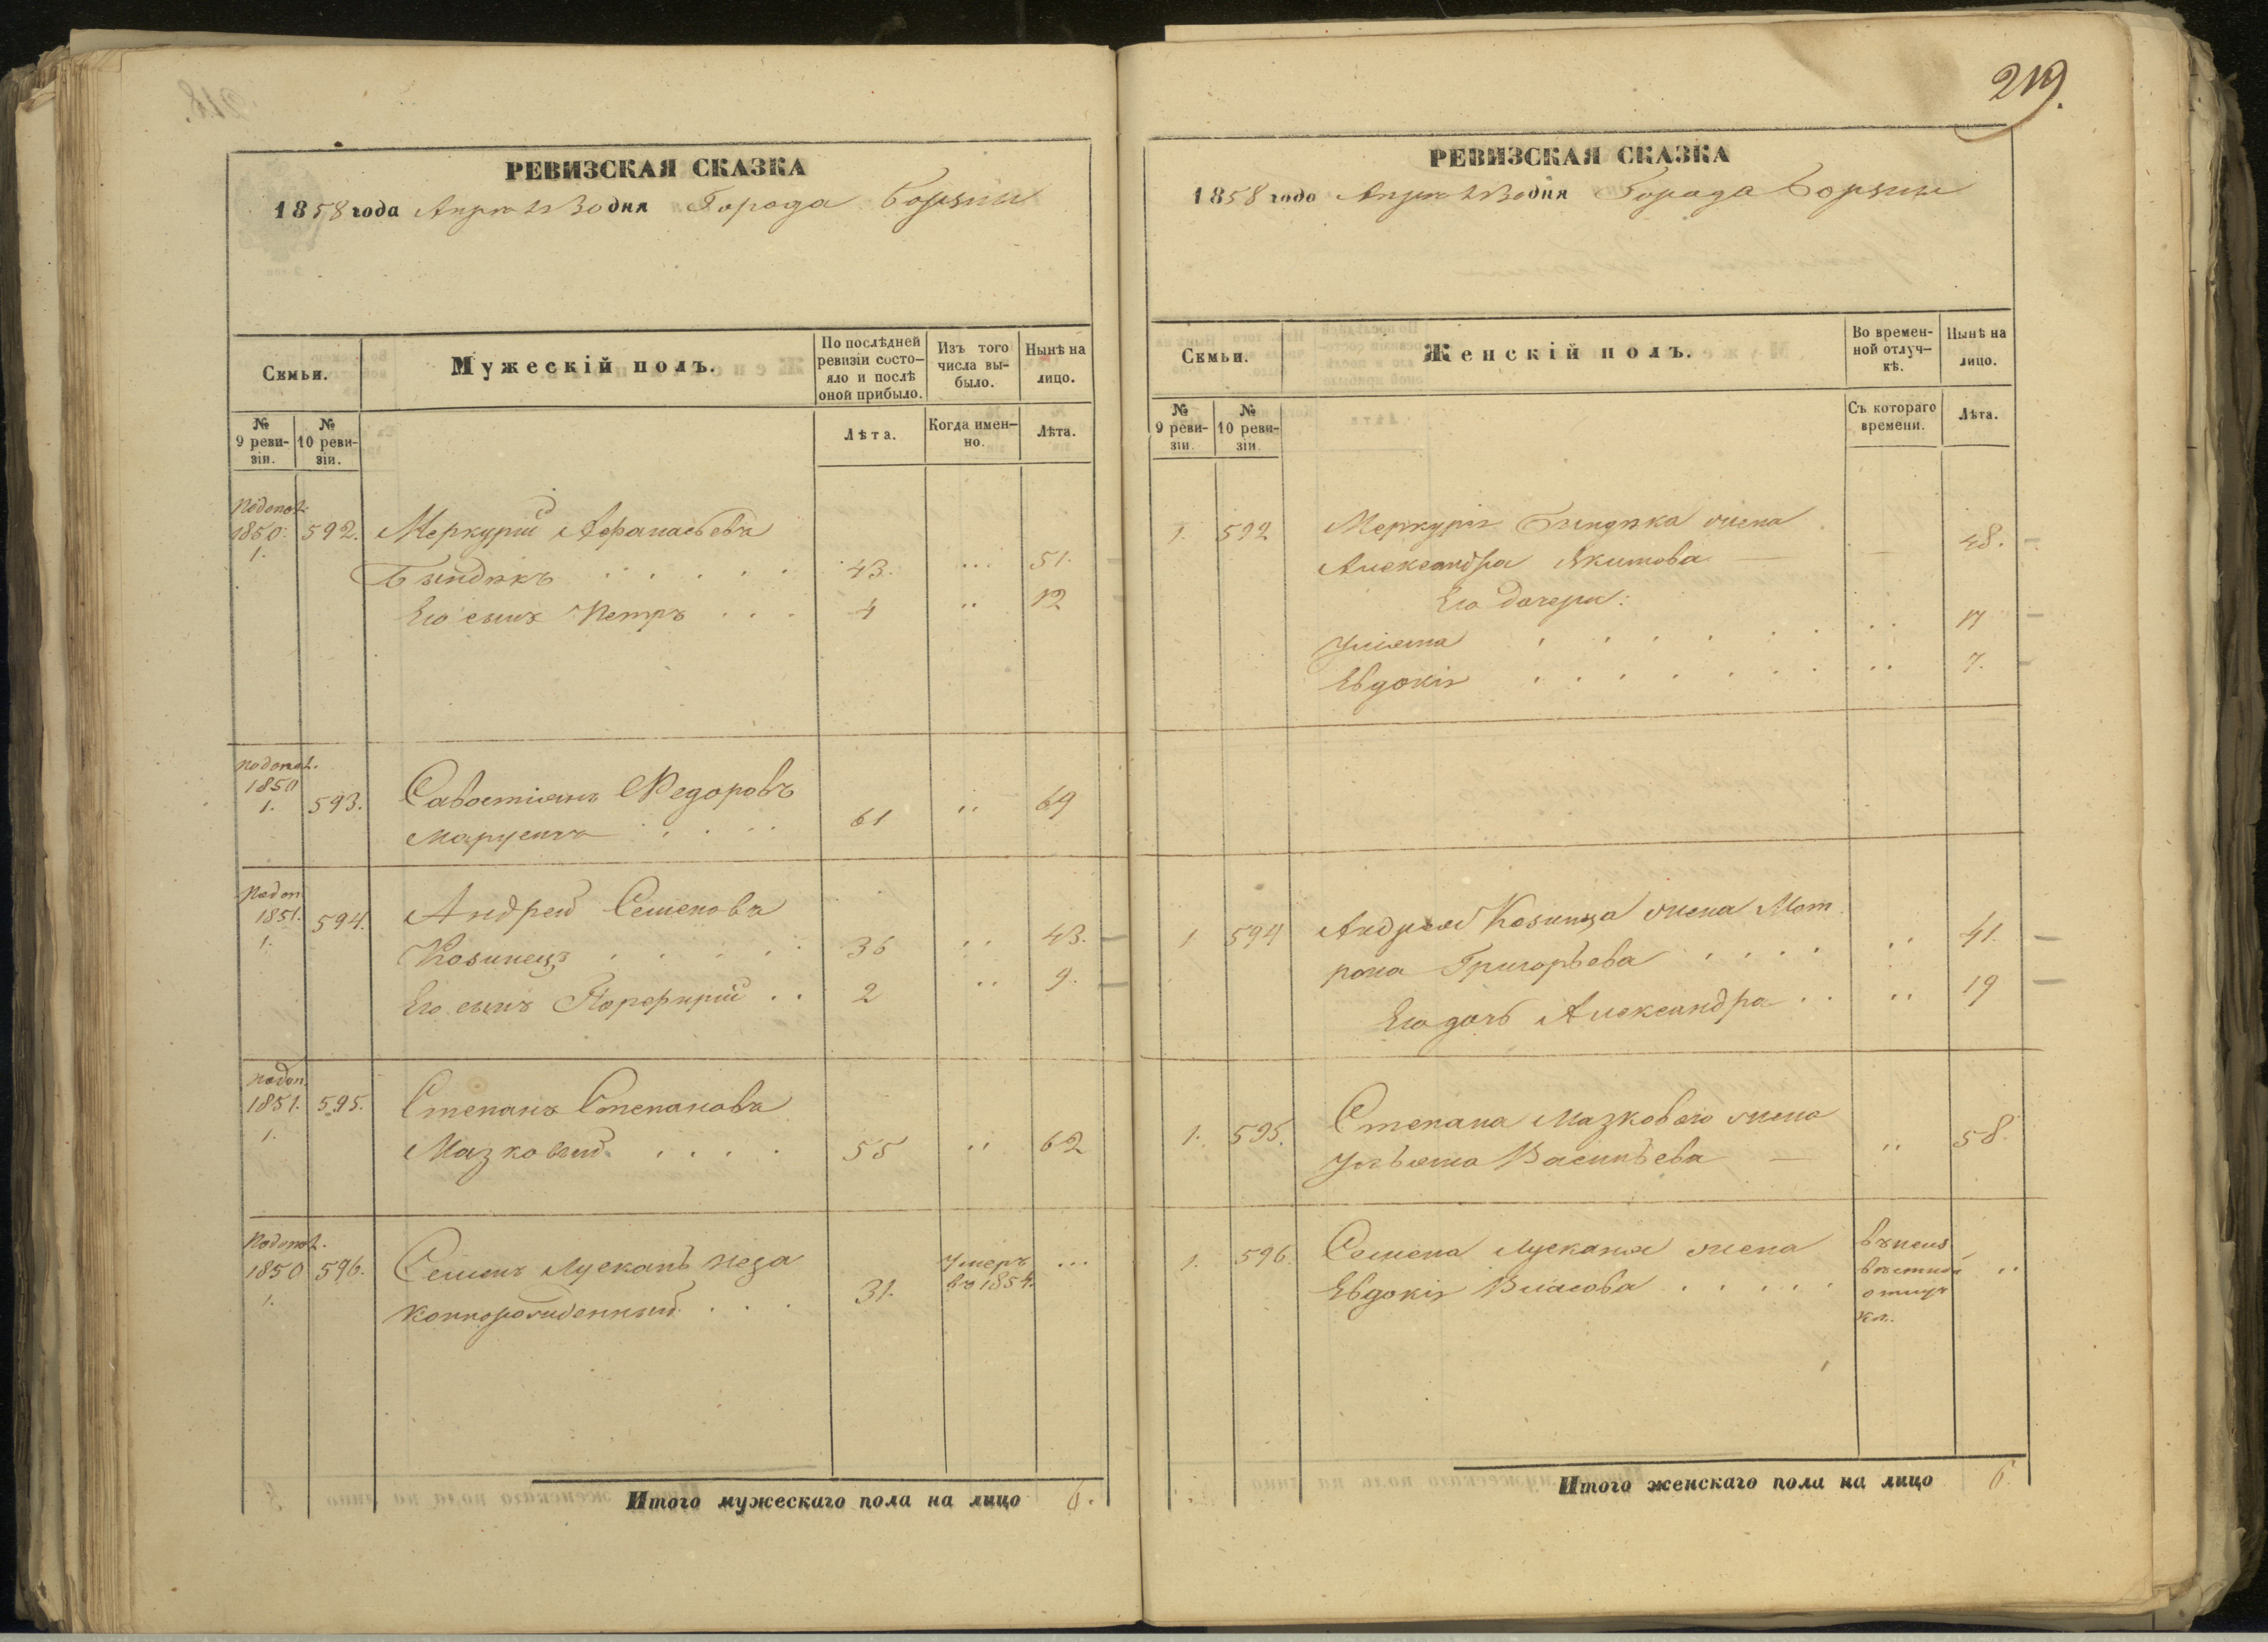 219.
РЕВИЗСКАЯ СКАЗКА
1858 года Апреля 30 дня Города Борзны
Семьи.
Мужескій полъ.
По послѣдней ревизіи состо-
яло и послѣ
оной прибыло.
Изъ того
числа вы-
было.
Нынѣ на
лицо.
№
9 реви-
зіи.
№
10 реви-
зіи.
Лѣта.
Когда имен-
но.
Лѣта.
1850. 592. Меркурій Афанасьевъ
1.
43. ... 51.
Его сынъ Петръ . . . 4 .. 12
1850
1. 593. Савостіянъ Федоровъ
61 .. 69
По доп.
1851. 594. Андрей Семеновъ
1.
Козинецъ . . . . . 36 .. 43.
Его сынъ Порфирій . . 2 .. 9.
по доп.
1851. 595. Степанъ Степановъ
1.
Мазковый . . . . 55 .. 62
1850 596. Семенъ Лускань неза
1.
коннорожденный . . . 31. Умеръ
въ 1854. ...
Итого мужескаго пола на лицо 6.
РЕВИЗСКАЯ СКАЗКА
1858 года Апреля 30 дня Города Борзны
Семьи.
Женскій полъ.
Во времен-
ной отлуч-
кѣ.
Нынѣ на
лицо.
№
9 реви-
зіи.
№
10 реви-
зіи.
Съ котораго
времени.
Лѣта.
1. 592 Меркурія жена
Александра Якимова — 48.
Его дочери:
Ульяна . . . . . . .. 17
Евдокія . . . . . . .. 7.
1. 594 Андрея Козинца жена Мот
рона Григорьева . . . . .. 41.
Его дочь Александра . . .. 19
1. 595. Степана Мазковаго жена
Ульяна Васильева — .. 58.
1. 596. Семена Лусканя жена
Евдокія Власова . . . . .
въ неиз
вѣстной
отлуч
кѣ.
..
Итого женскаго пола на лицо 6